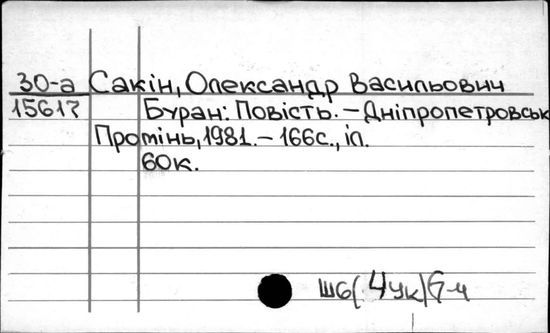 30-а Сакін, Олександр Васильович
15617 Буран: Повість. – Дніпропетровськ
Промінь, 1981. – 166с., іл.
60к.
Ш6(4Ук)6-4